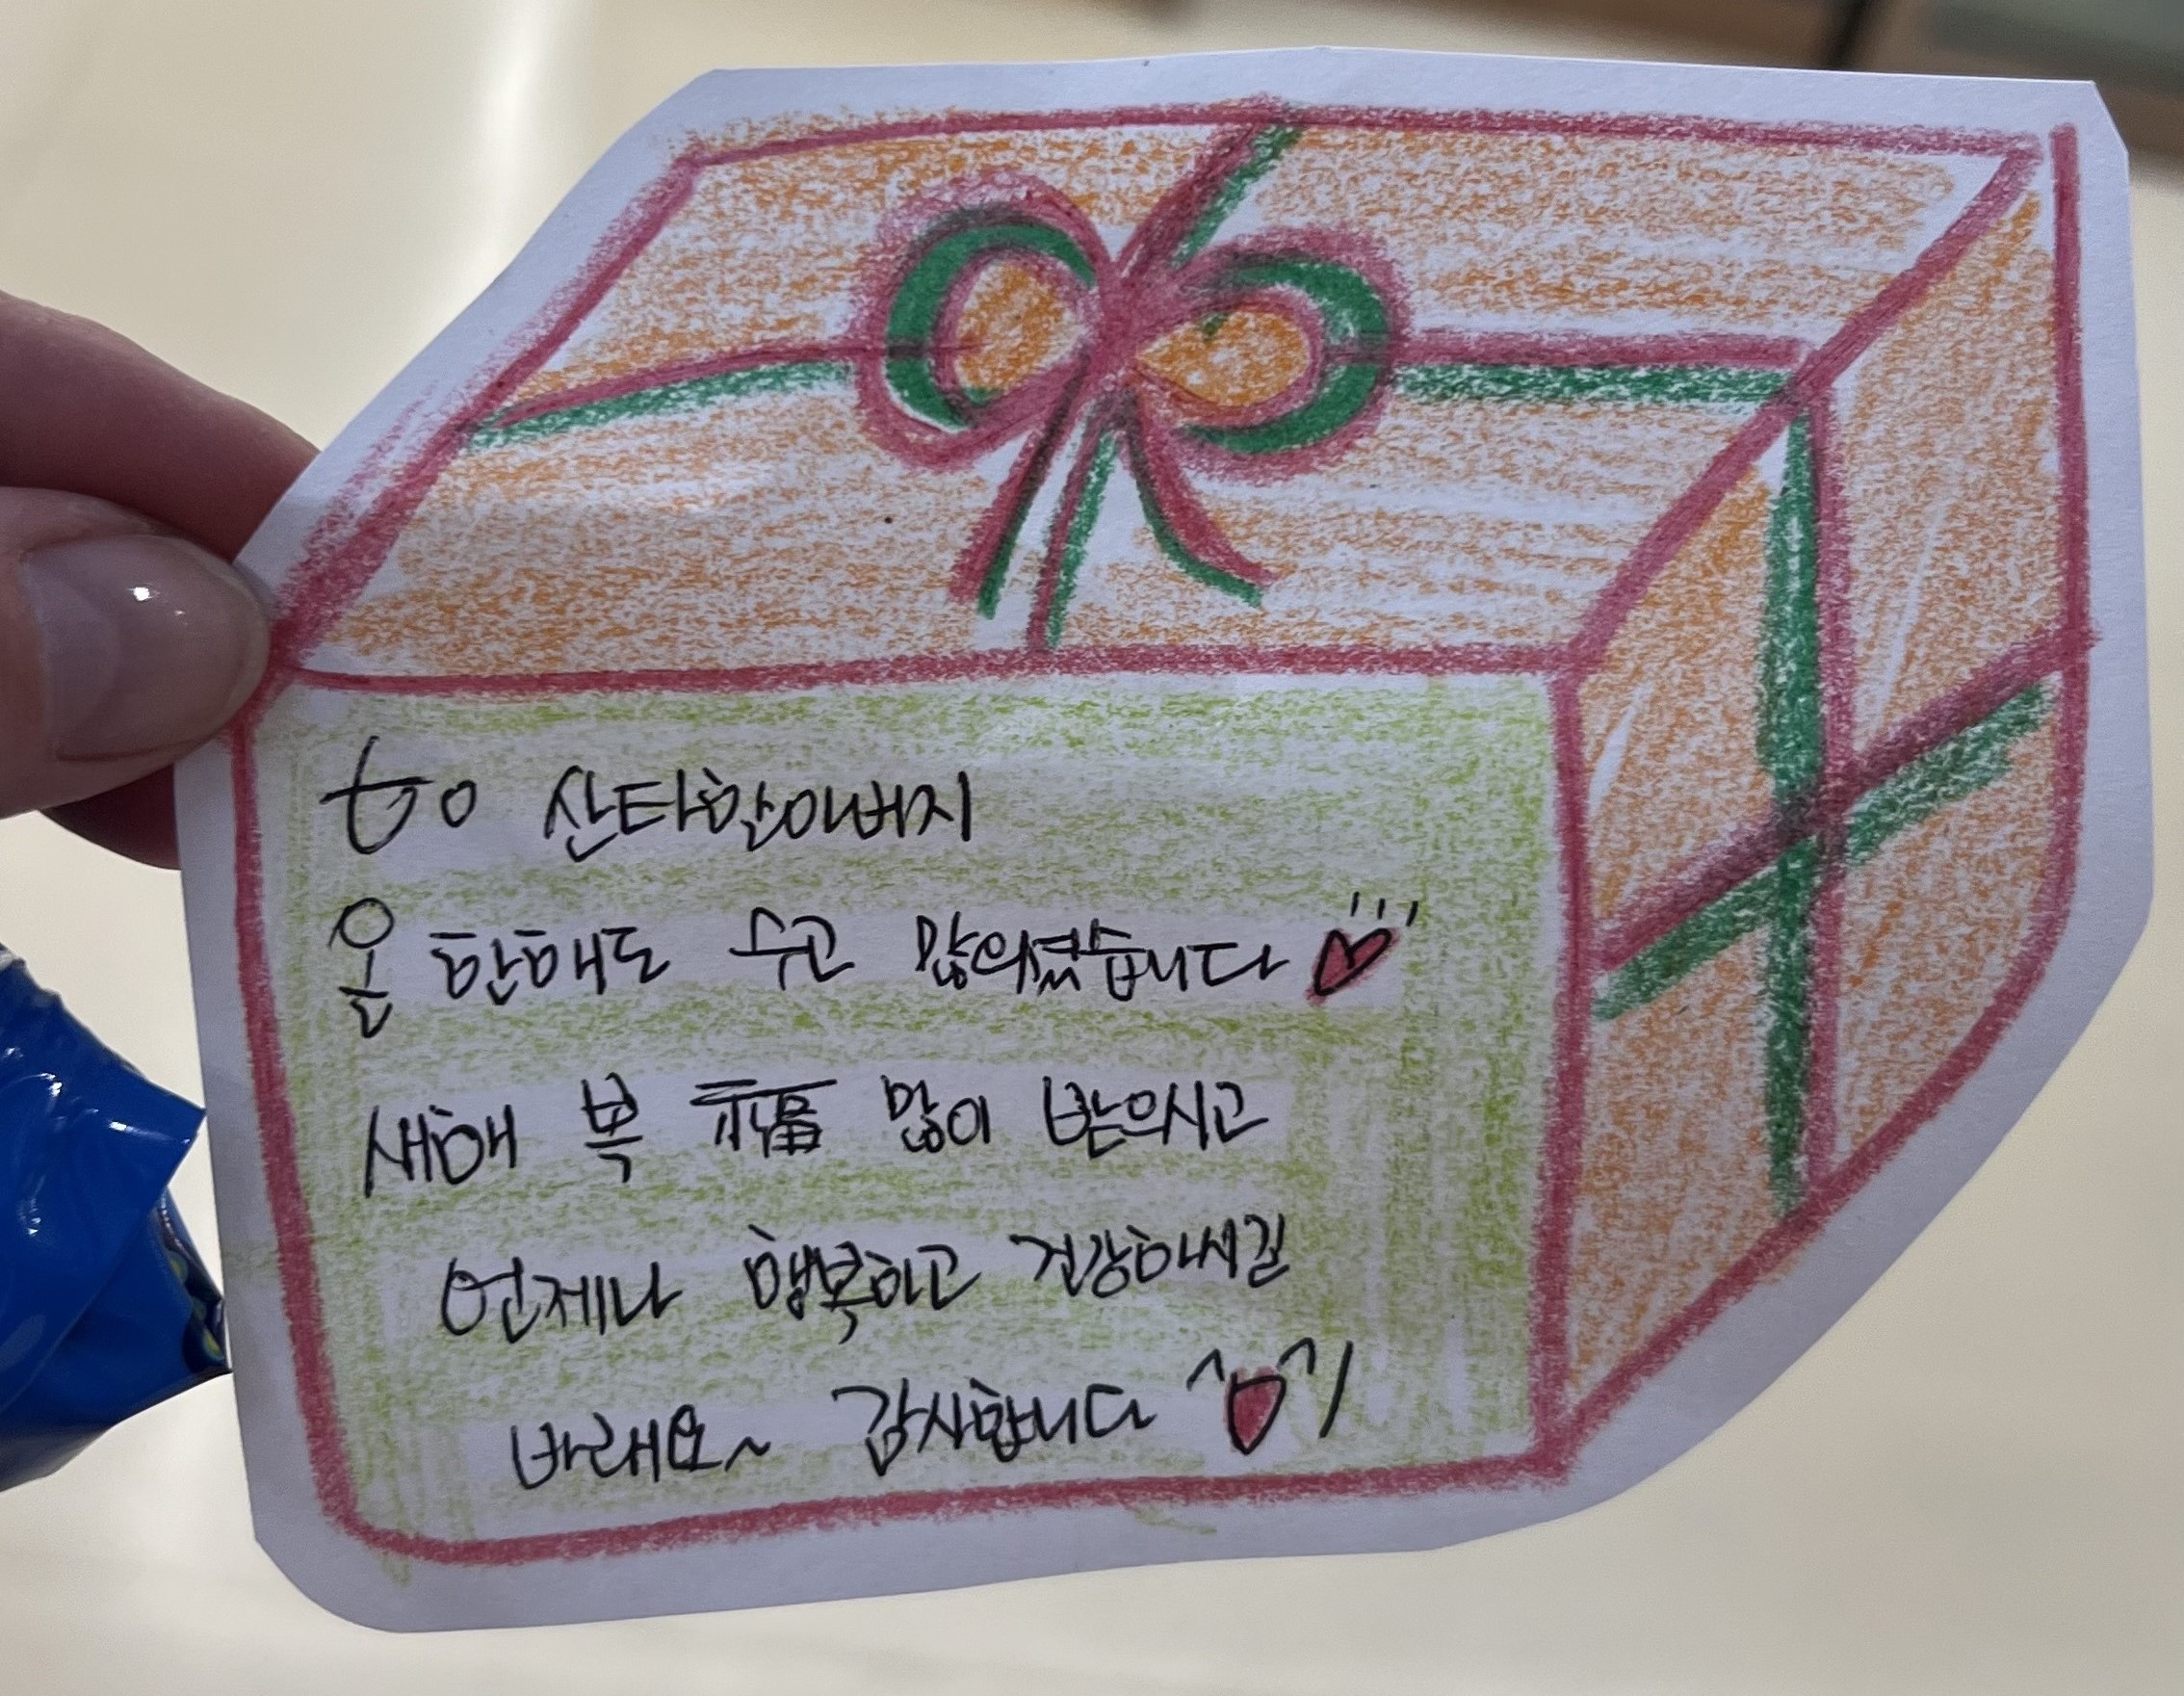 to 산타할아버지
올 한해도 수고 많의셨습니다♡
새해 복 福 많이 받으시고
언제나 행복하고 건강하시길
바래요~ 감사합니다 ^♡^/